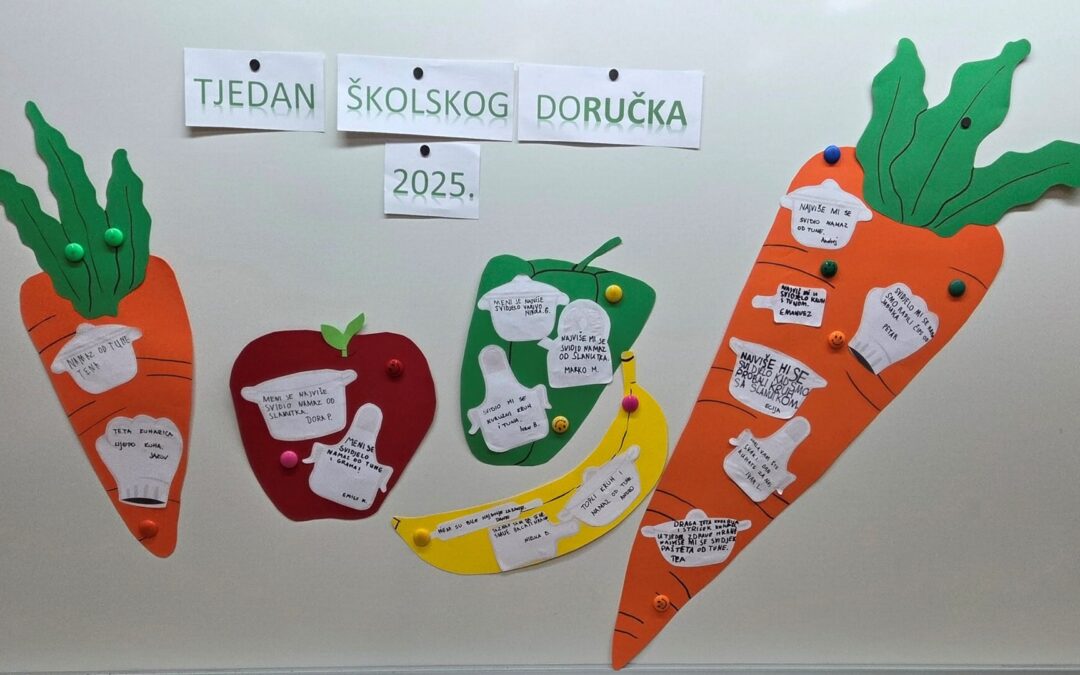 TJEDAN ŠKOLSKOG DORUČKA
2025.
NAMAZ OD TUNE
TENA
TETA KUHARICA
LIJEPO KUHA.
JAKOV
MENI SE NAJVIŠE
SVIDIO NAMAZ OD
SLANUTKA.
DORA P.
MENI SE
SVIDJELO
NAMAZ OD TUNE
I GRAHA!
EMILI K.
MENI SE NAJVIŠE
SVIDJELO VARIVO
B.
NAJVIŠE MI SE
SVIDIO NAMAZ
OD SLANUTKA.
MARKO M.
SVIDIO MI SE
KUKURUZNI KRUH
I TUNA.
B.
MENI SU BILE
TOPLI KRUH I
NAMAZ OD TUNE
B.
NAJVIŠE MI SE
SVIDIO NAMAZ
OD TUNE.
Andrej
NAJVIŠE MI JE
SVIDJELO KRUH
S TUNOM.
EMANUEL
SVIDJELO MI SE KADA
SMO RADILI
PETAR
NAJVIŠE MI SE
SVIDJELO KAD SMO
PROBALI KRUH
SA SLANUTKOM.
HVALA VAM ŠTO
KUHATE ZA NAS
IVAN
DRAGA TETA KUHARICA
I STRIČEK
U TJEDNU ZDRAVE HRANE
NAJVIŠE MI SE SVIDJELA
PAŠTETA OD TUNE.
TEA